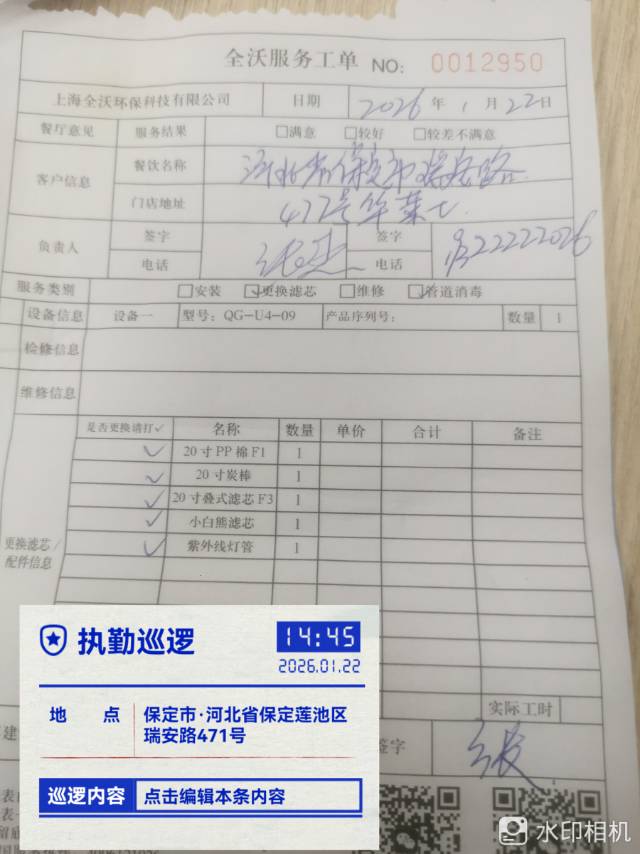 全沃服务工单 NO: 0012950
上海全沃环保科技有限公司 日期 2026年1月22日
餐厅意见 服务结果 □满意 □较好 □较差不满意
客户信息 餐饮名称 河北省保定市瑞安路
门店地址 477号华莱士
负责人 签字 签字
电话 电话
服务类别 □安装 ☑更换滤芯 □维修 ☑管道消毒
设备信息 设备一 型号: QG-U4-09 产品序列号: 数量 1
检修信息
维修信息
是否更换请打✓ 名称 数量 单价 合计 备注
✓ 20寸PP棉F1 1
✓ 20寸炭棒 1
✓ 20寸叠式滤芯F3 1
✓ 小白熊滤芯 1
✓ 紫外线灯管 1
更换滤芯/
配件信息
实际工时
签字
执勤巡逻 14:45
2026.01.22
地 点 保定市·河北省保定莲池区
瑞安路471号
巡逻内容 点击编辑本条内容
水印相机